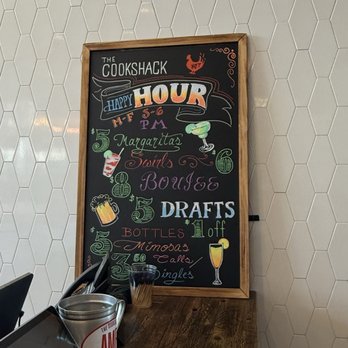 THE
COOKSHACK
HAPPY HOUR
M-F 3-6
PM
$5 Margaritas
Swirls 6
$8 BOUJEE
$5 DRAFTS
BOTTLES $1 off
$5 Mimosas
3.50 Calls/
Singles